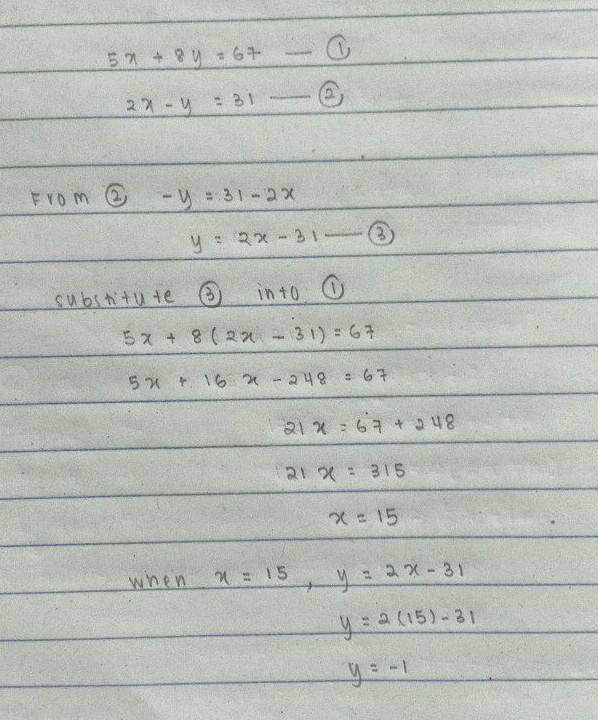 5x + 8y = 67 — ①
2x - y = 31 — ②
From ② -y = 31 - 2x
y = 2x - 31 — ③
substitute ③ into ①
5x + 8(2x - 31) = 67
5x + 16x - 248 = 67
21x = 67 + 248
21x = 315
x = 15
when x = 15, y = 2x - 31
y = 2(15) - 31
y = -1